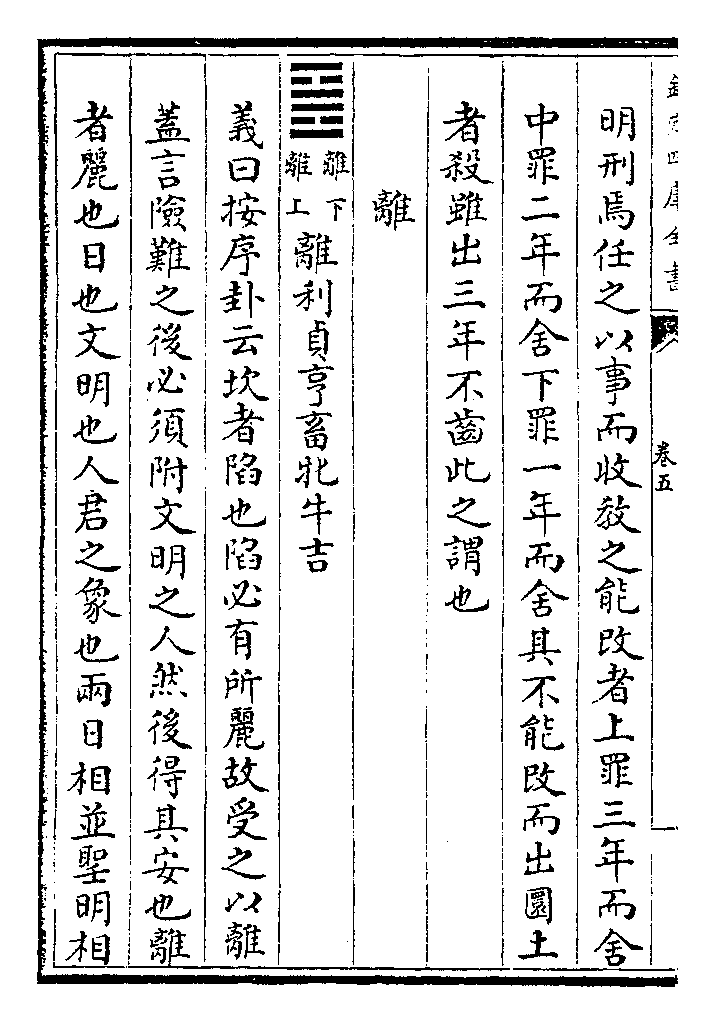 欽定四庫全書
卷五
明刑焉任之以事而收教之能改者上罪三年而舍
中罪二年而舍下罪一年而舍其不能改而出圜土
者殺雖出三年不齒此之謂也
離
䷝離下離上離利貞亨畜牝牛吉
義曰按序卦云坎者陷也陷必有所麗故受之以離
蓋言險難之後必須附文明之人然後得其安也離
者麗也日也文明也人君之象也兩日相並聖明相